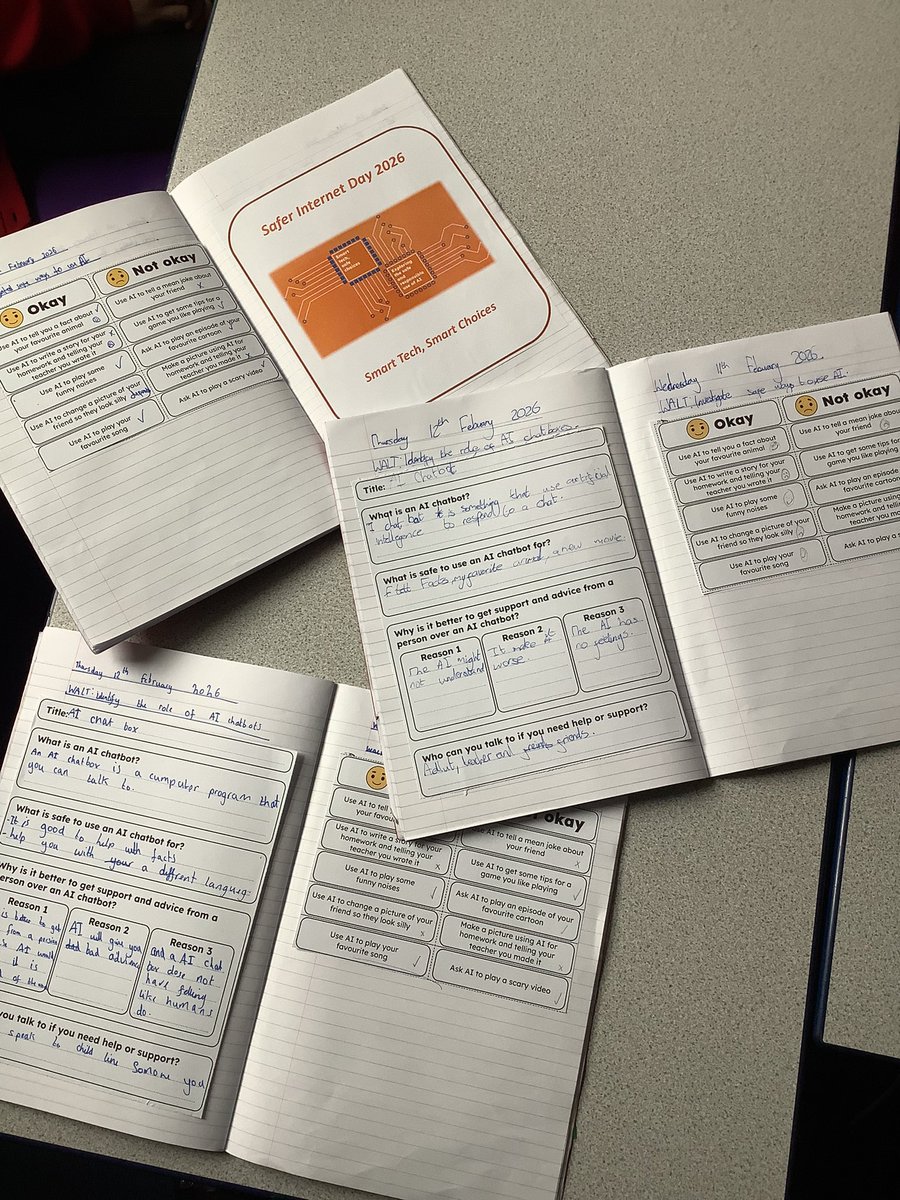 February 2026
Okay
Not okay
Use AI to tell you a fact about
your favourite animal
Use AI to tell a mean joke about
your friend
Use AI to write a story for your
homework and telling your
teacher you wrote it
Use AI to get some tips for a
game you like playing
Use AI to play some
funny noises
Ask AI to play an episode of your
favourite cartoon
Use AI to change a picture of your
friend so they look silly
Make a picture using AI for
homework and telling your
teacher you made it
Use AI to play your
favourite song
Ask AI to play a scary video
Safer Internet Day 2026
Smart
tech,
safe
choices
Exploring
the safe
and
responsible
use of AI
Smart Tech, Smart Choices
Thursday 12th Febuary 2026
WALT: Identify the role of AI chatboxes.
Title: AI Chatbot
What is an AI chatbot?
I chat bot it is something that use
intelligence to respond to a chat.
What is safe to use an AI chatbot for?
Facts, my favorite animal, a new movie.
Why is it better to get support and advice from a
person over an AI chatbot?
Reason 1
The AI might
not understand
Reason 2
It make it
worse.
Reason 3
The AI has
no feelings.
Who can you talk to if you need help or support?
Adlut, teacher and friends.
Wednesday 11th Febuary 2026.
WALT: Investigate safe ways to use AI.
Okay
Not okay
Use AI to tell you a fact about
your favourite animal
Use AI to tell a mean joke about
your friend
Use AI to write a story for your
homework and telling your
teacher you wrote it
Use AI to get some tips
game you like playing
Use AI to play some
funny noises
Ask AI to play an episode
favourite cartoon
Use AI to change a picture of your
friend so they look silly
Make a picture using
homework and telling
teacher you made
Use AI to play your
favourite song
Ask AI to play a
Thursday 12th February 2026
WALT: Identify the role of AI chatbots
Title: AI chat box
What is an AI chatbot?
An AI chatbox is a cumputer program that
you can talk to.
What is safe to use an AI chatbot for?
-It is good to help with facts
-help you with your a diffrent languag
Why is it better to get support and advice from a
person over an AI chatbot?
Reason 1
is better to get
from a person
AI
it is
of the
Reason 2
AI will give you
bad advise
Reason 3
and a AI chat
box dose not
have felling
like humans
do.
you talk to if you need help or support?
speak to child line Somone you
Use AI to tell
your favou
Use AI to write a story for your
homework and telling your
teacher you wrote it
Use AI to play some
funny noises
Use AI to change a picture of your
friend so they look silly
Use AI to play your
favourite song
okay
AI to tell a mean joke about
your friend
Use AI to get some tips for a
game you like playing
Ask AI to play an episode of your
favourite cartoon
Make a picture using AI for
homework and telling your
teacher you made it
Ask AI to play a scary video